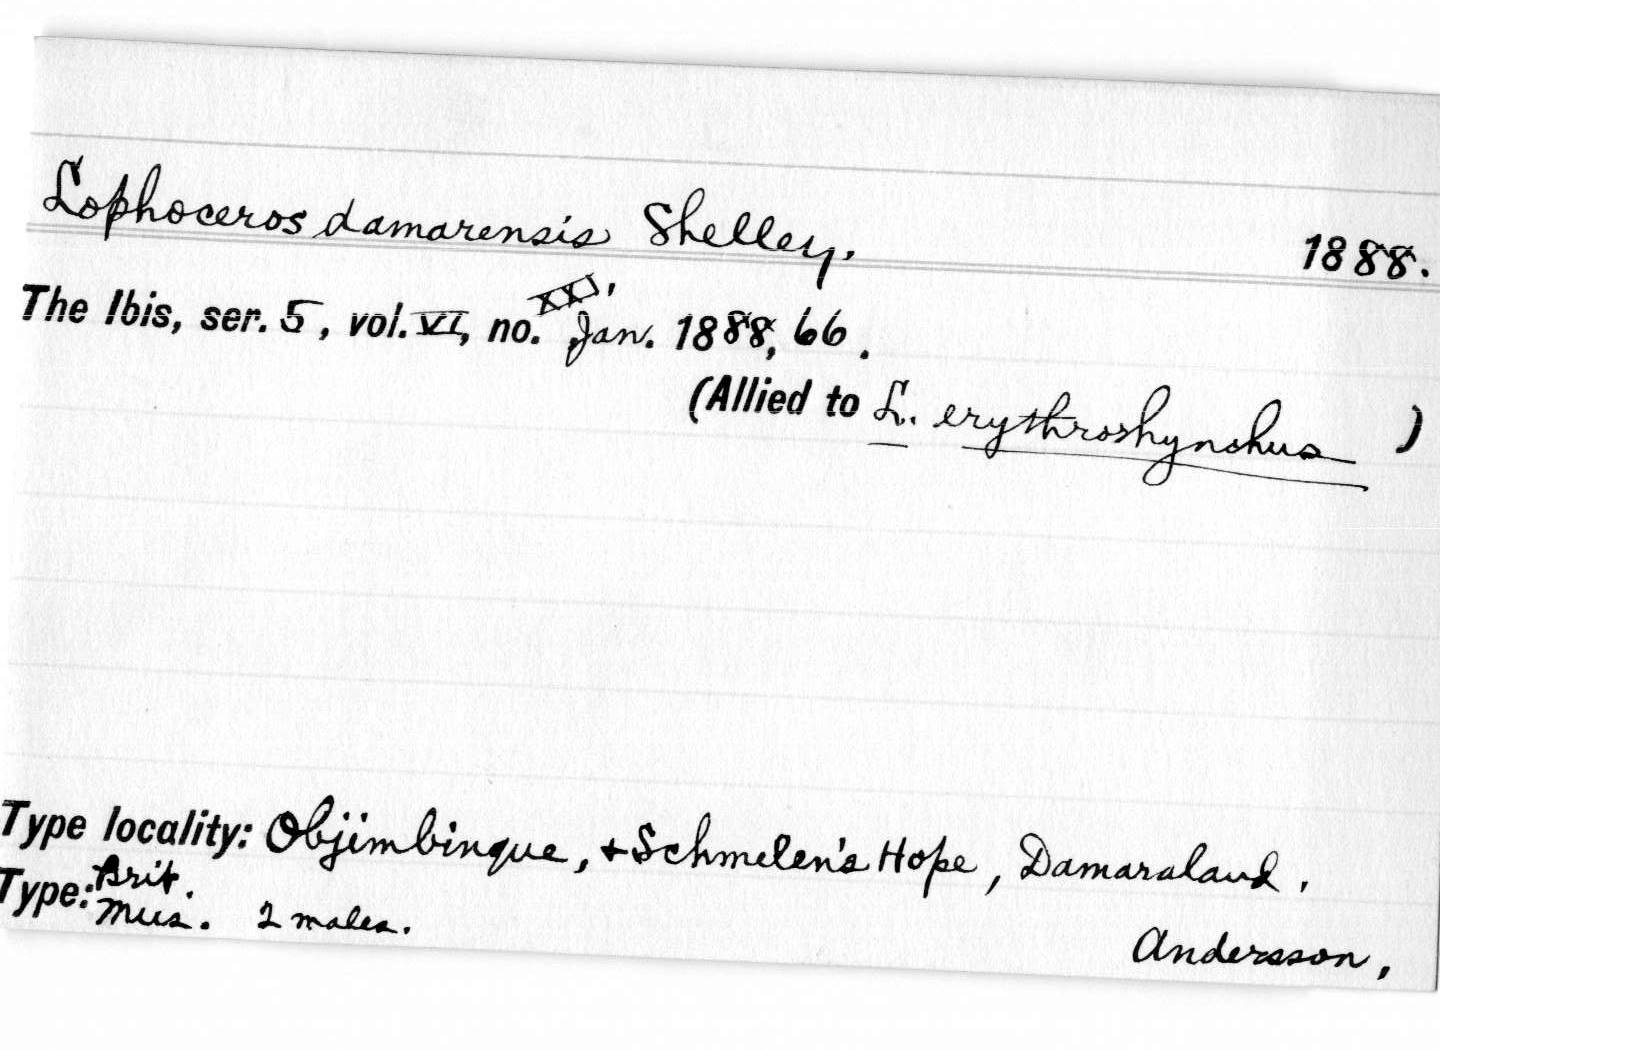 Lophoceros damarensis Shelley. 1888.
The Ibis, ser. 5, vol. VI, no. XXI, Jan. 1888, 66.
(Allied to L. erythrorhynchus )
Type locality: Objimbinque, + Schmelen's Hope, Damaraland.
Type: Brit. Mus. 2 males. Andersson,